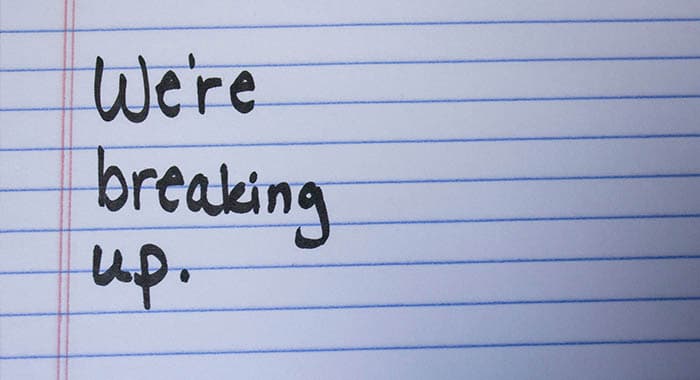 We're
breaking
up.